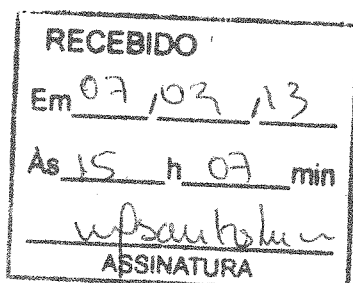 RECEBIDO
Em 07, 02, 13
Às 15 h 07 min
ASSINATURA